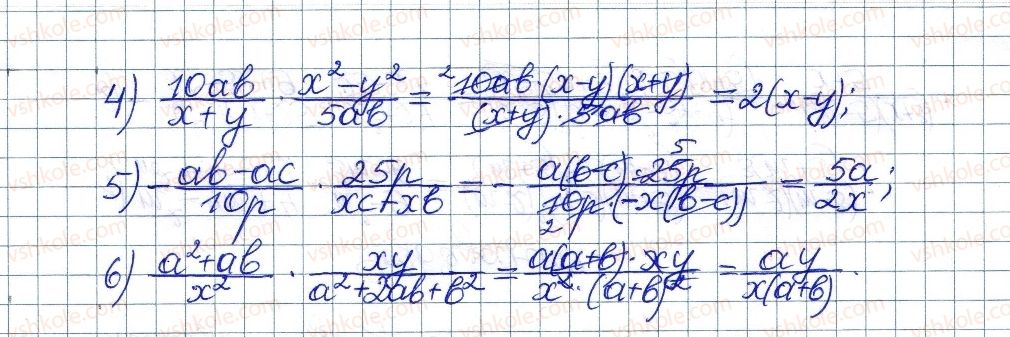 4) 10ab/(x+y) · (x²-y²)/5ab = ²10ab·(x-y)(x+y)/((x+y)·5ab) = 2(x-y);
5) -(ab-ac)/10p · 25p/(xc-xb) = -a(b-c)·25p⁵/(10p₂·(-x(b-c))) = 5a/2x;
6) (a²+ab)/x² · xy/(a²+2ab+b²) = a(a+b)·xy/(x²·(a+b)²) = ay/(x(a+b)).